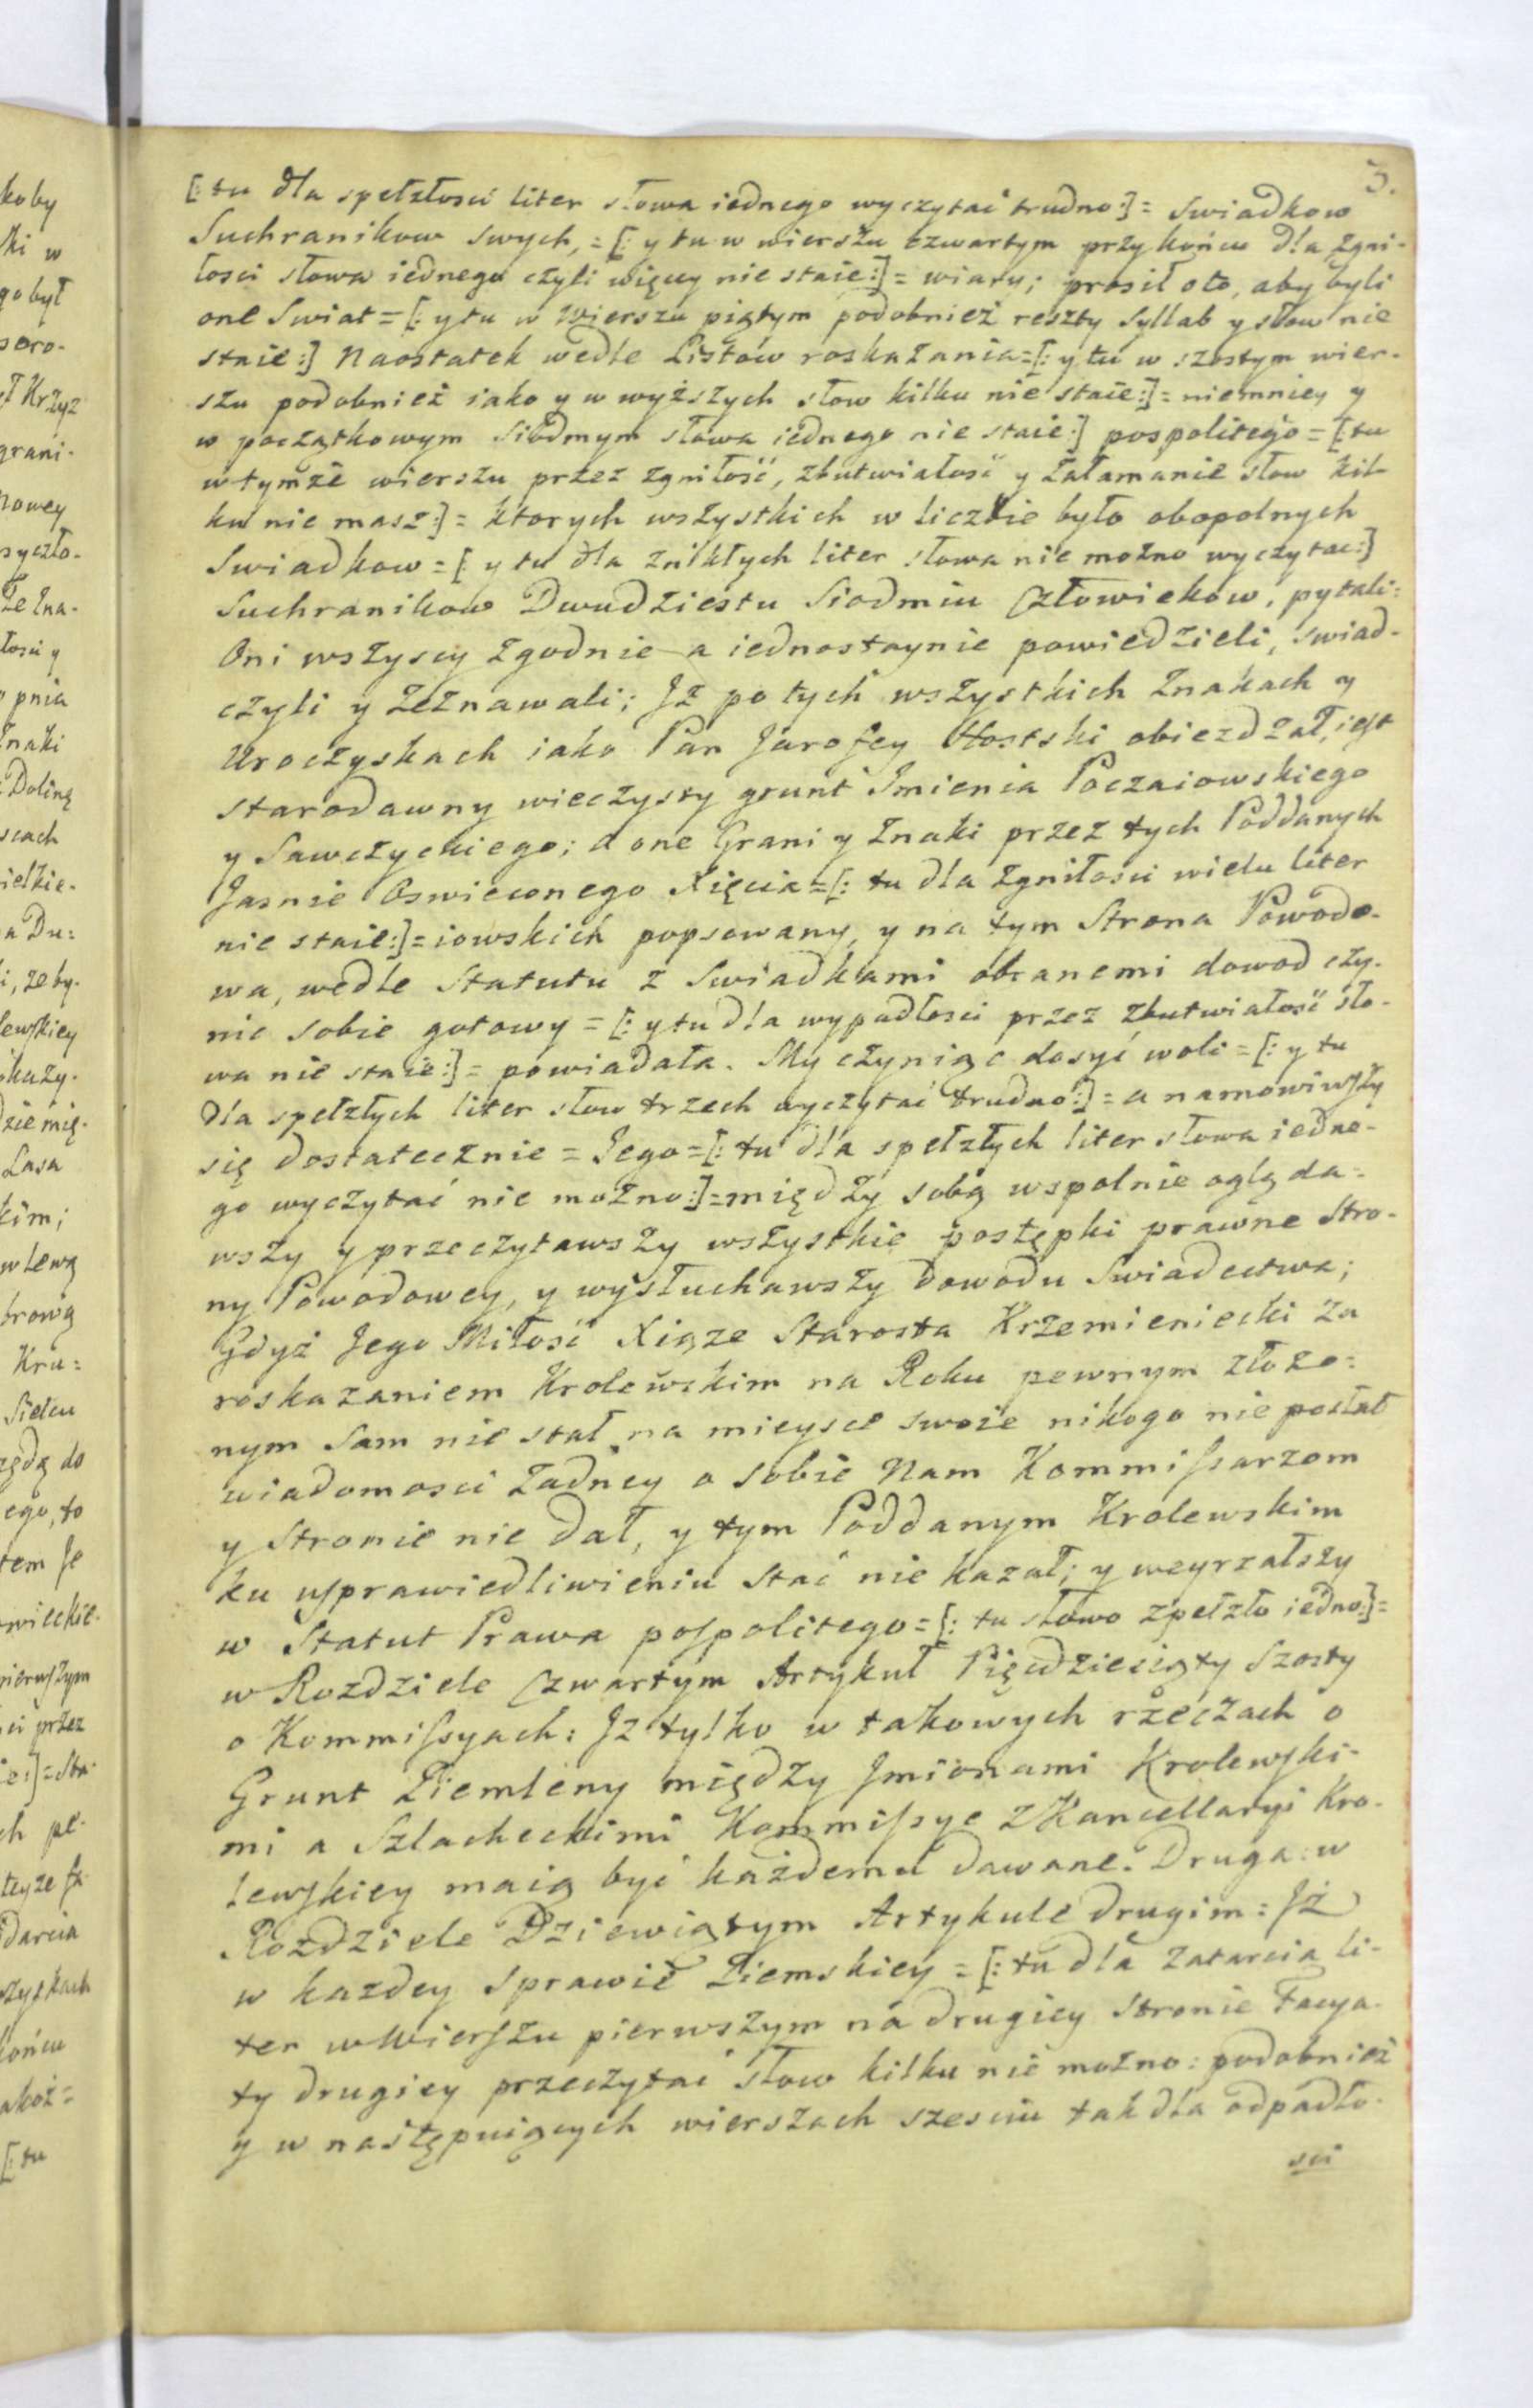 3.
[: tu dla spełzłosci liter słowa iednego wyczytać trudno :] = Swiadkow
Suchranikow swych, = [: y tu w wierszu czwartym przy końcu dla zgni-
łosci słowa iednego czyli więcey nie staie :] = wiary; prosił oto, aby byli
one Swiat = [: y tu w Wierszu piątym podobnież reszty Syllab y słow nie
staie :] Naostatek wedle Listow roskazania = [: y tu w szostym wier-
szu podobnież iako y w wyższych słow kilku nie staie :] = niemniey y
w początkowym Siodmym słowa iednego nie staie :] pospolitego = [: tu
w tymże wierszu przez zgniłość, zbutwiałość y załamanie słow kil-
ku nie masz :] = ktorych wszystkich w liczbie było obopolnych
Swiadkow = [: y tu dla znikłych liter słowa nie możno wyczytac :]
Suchranikow Dwudziestu Siodmiu Człowiekow, pytali:
Oni wszyscy zgodnie a iednostaynie powiedzieli, swiad-
czyli y zeznawali; Iż po tych wszystkich znakach y
Uroczyskach iako Pan Jarofey Hostski obiezdzał, iest
starodawny wieczysty grunt Imienia Poczaiowskiego
y Sawczyckiego; a one Grani y znaki przez tych Poddanych
Jasnie Oswieconego Xięcia = [: tu dla zgniłosci wielu liter
nie staie :] = iowskich popsowany, y na tym Strona Powodo-
wa, wedle Statutu z Swiadkami obranemi dowod czy-
nic sobie gotowy = [: y tu dla wypadłosci przez zbutwiałość sło-
wa nie staie :] = powiadała. My czyniąc dosyć woli = [: y tu
dla spełzłych liter słow trzech wyczytać trudno :] = a namowiwszy
się dostatecznie = Jego = [: tu dla spełzłych liter słowa iedne-
go wyczytać nie możno :] = między sobą wspolnie ogląda-
wszy y przeczytawszy wszystkie postępki prawne Stro-
ny Powodowey, y wysłuchawszy Dowodu Swiadectwa;
Gdyż Jego Miłość Xiąze Starosta Krzemieniecki za
roskazaniem Krolewskim na Roku pewnym złożo-
nym Sam nie stał, na mieysce swoie nikogo nie posłał
wiadomosci żadney o sobie Nam Kommissarzom
y Stronie nie dał, y tym Poddanym Krolewskim
ku usprawiedliwieniu stać nie kazał; y weyrzałszy
w Statut Prawa pospolitego = [: tu słowo zpełzło iedno :] =
w Rozdziele Czwartym Artykuł Pięcdziesiąty Szosty
o Kommissyach: Iż tylko w takowych rzeczach o
Grunt Ziemleny między Imionami Krolewski-
mi a Szlacheckimi Kommissye z Kancellaryi Kro-
lewskiey maią być każdemu dawane. Druga: w
Rozdziele Dziewiątym Artykule drugim: Iż
w każdey sprawie Ziemskiey = [: tu dla zatarcia li-
ter w Wierszu pierwszym na drugiey Stronie Facya-
ty drugiey przeczytać słow kilku nie możno: podobnież
y w następuiących wierszach szesciu tak dla odpadło-
sci